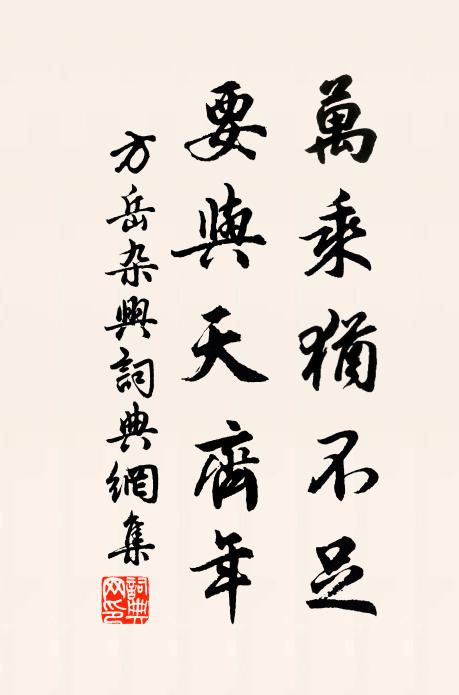 萬乘猶不足
要與天齊年
方岳杂興詞典網集
詞典網印